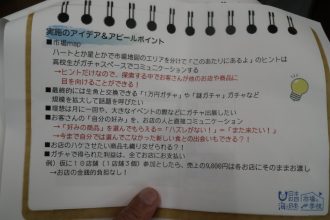 実施のアイデア＆アピールポイント
■市場map
ハートとか星とかで市場地図のエリアを分けて「このあたりにあるよ」のヒントは
高校生がガチャスペースでコミュニケーションする
→ヒントだけなので、探索する中でお客さんが他のお店や商品に
目を向けることができる！
■最終的には生魚と交換できる「1万円ガチャ」や「謎ガチャ」ガチャなど
規模を拡大して話題を呼びたい
■理想は月に一回や、大きなイベントの際などにガチャ出展したい
■お客さんの「自分の好み」を、お店の人と直接コミュニケーション
→「好みの商品」を選んでもらえる=「ハズレがない！」=「また来たい！」
→今まで自分では選んでこなかった新しい食との出会いもできる？！
■お店のハケさせたい商品も織り交ぜられる？！
■ガチャで得られた利益は、全てお店にお支払い
例）仮に10店舗（1店舗3個）参加したら、売上の9,000円は各お店にそのままお渡し
→お店の金銭的負担なし！